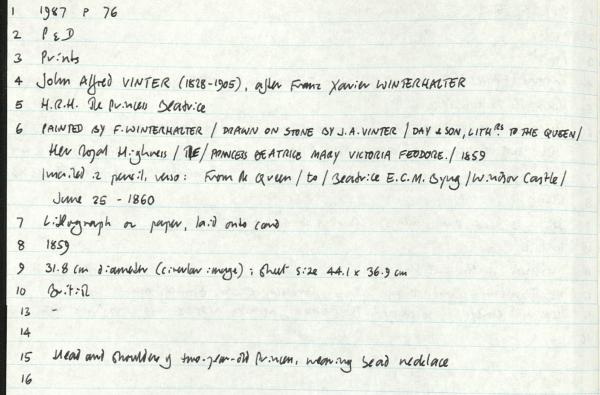 1 1987 P 76
2 P & D
3 Prints
4 John Alfred VINTER (1828-1905), after Franz Xavier WINTERHALTER
5 H.R.H. The Princess Beatrice
6 PAINTED BY F. WINTERHALTER / DRAWN ON STONE BY J.A. VINTER / DAY & SON, LITHRS. TO THE QUEEN /
Her Royal Highness / THE / PRINCESS BEATRICE MARY VICTORIA FEODORE. / 1859
Inscribed in pencil, verso: From the Queen / to / Beatrice E.C.M. Byng / Windsor Castle /
June 25 - 1860
7 Lithograph on paper, laid onto card
8 1859
9 31.8 cm diameter (circular image); sheet size 44.1 x 36.9 cm
10 British
13 -
14
15 Head and shoulders of two-year-old Princess, wearing bead necklace
16